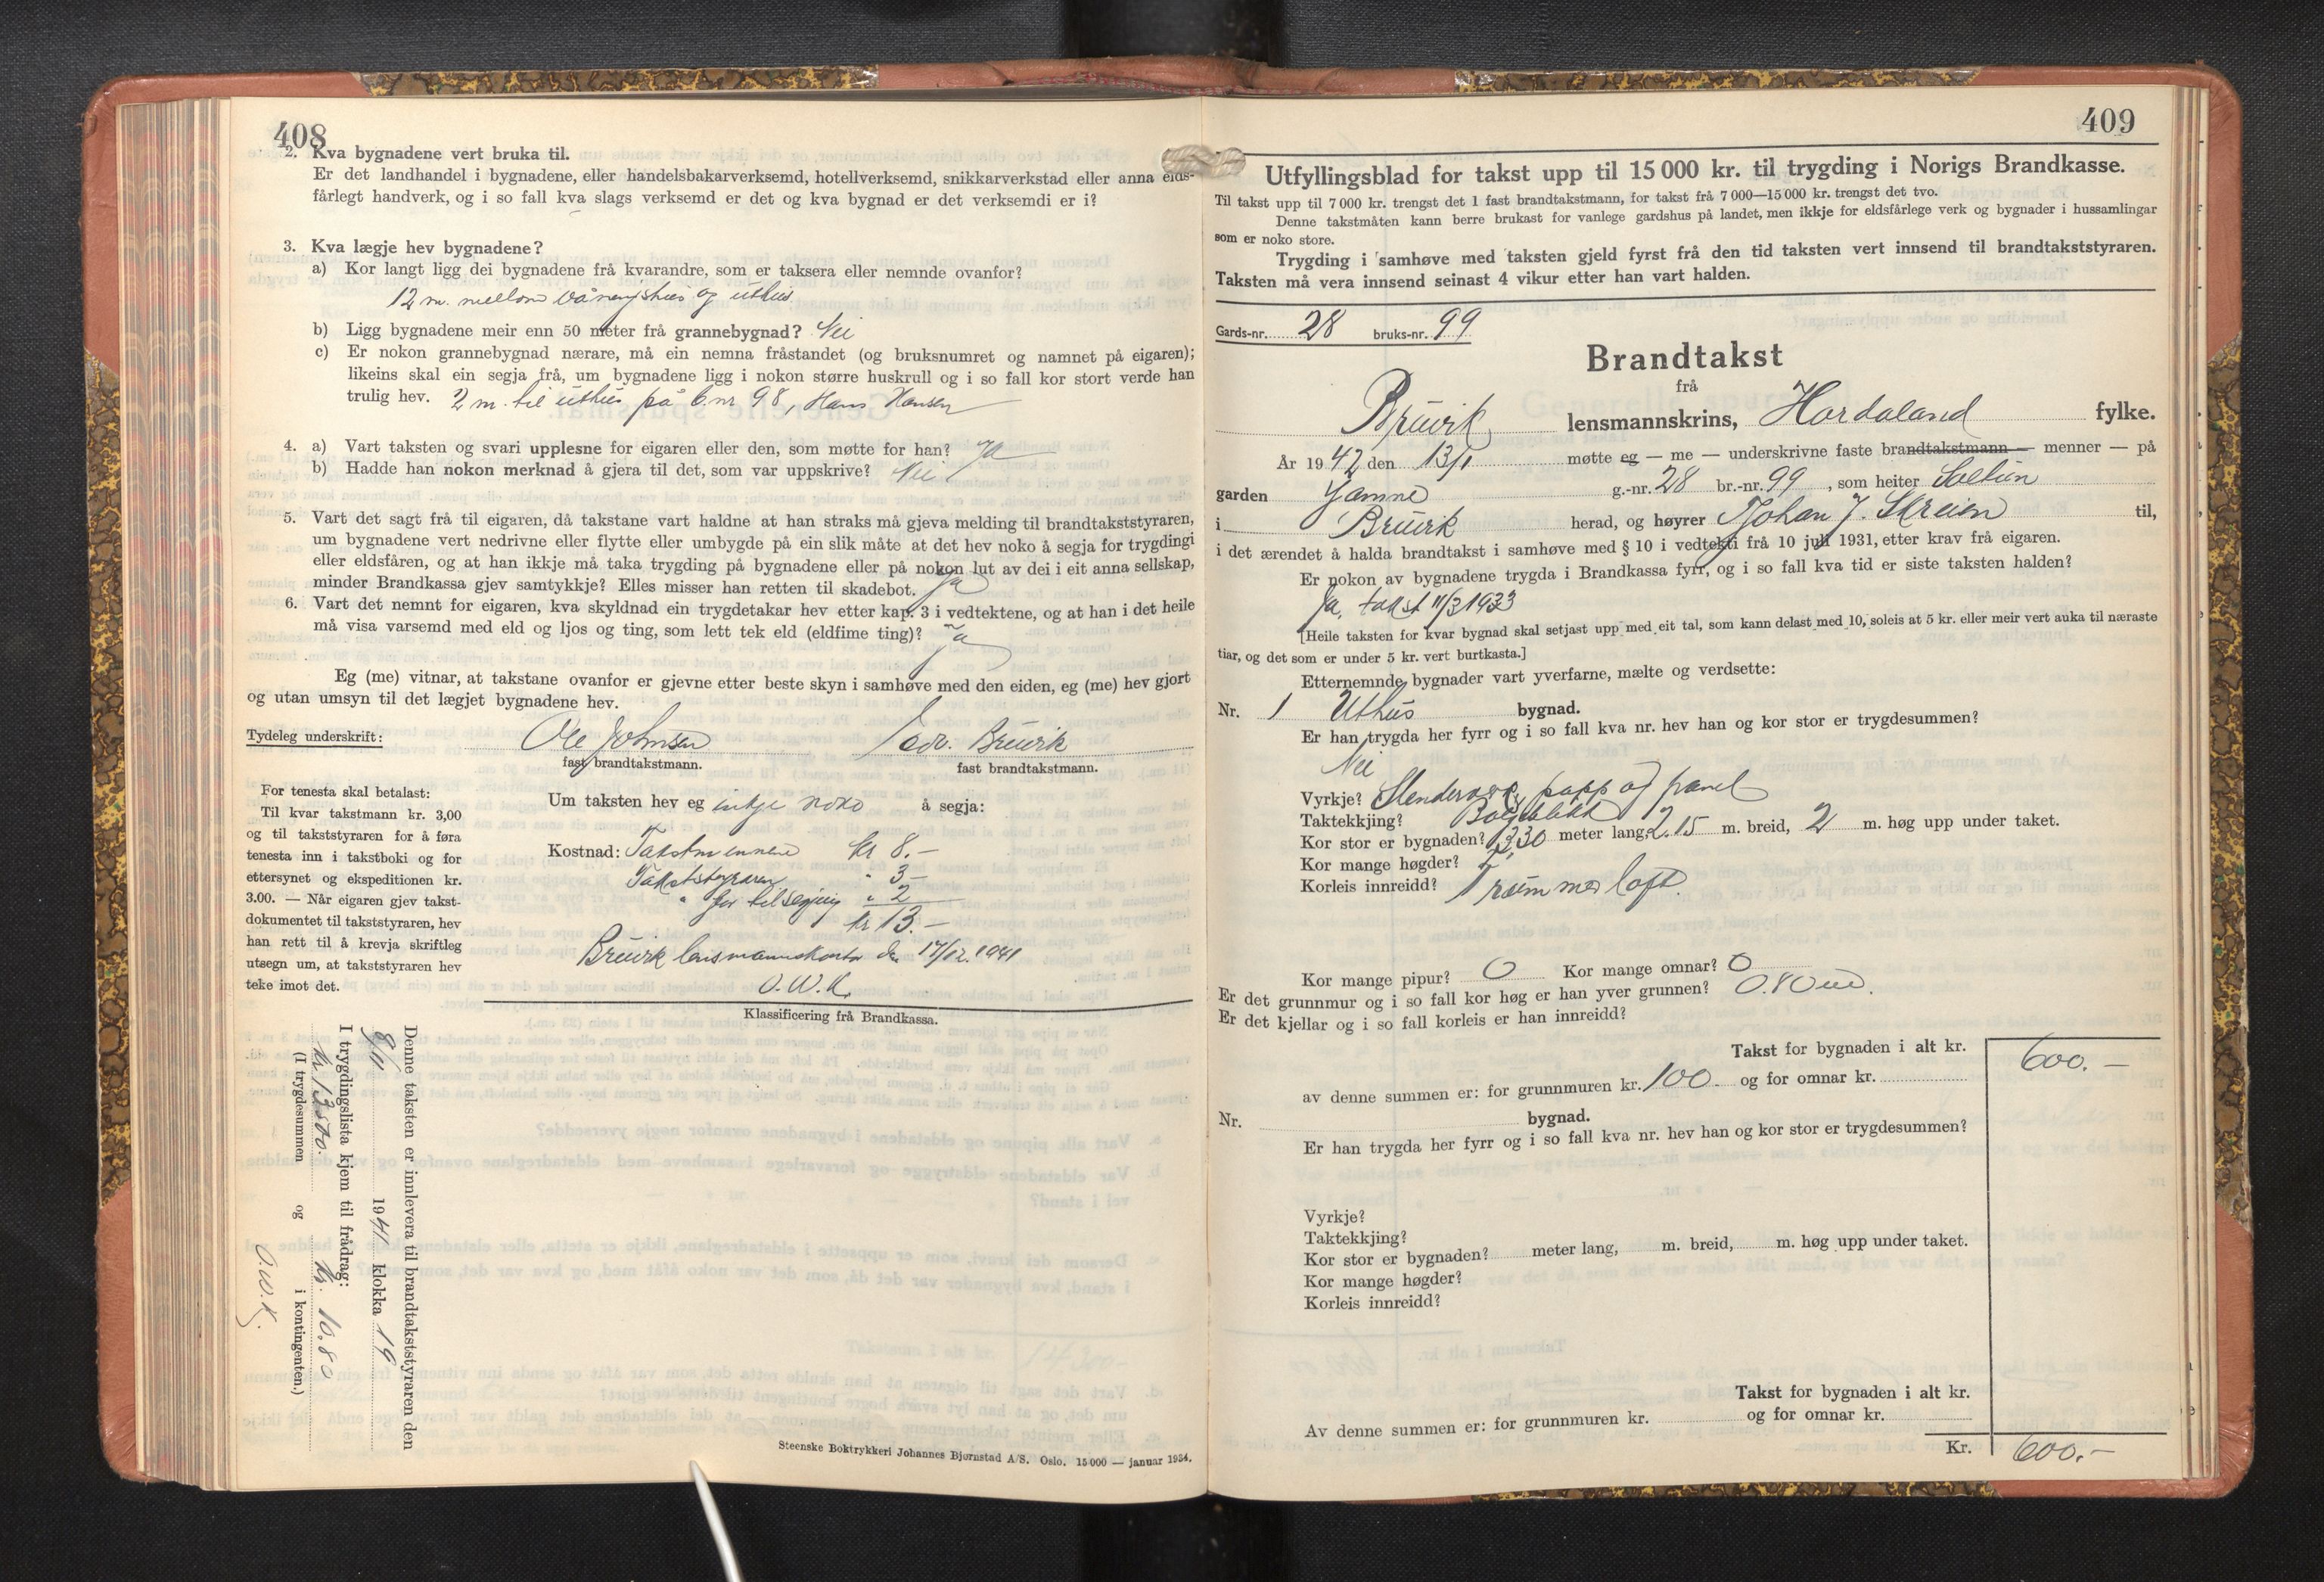 408
2. Kva bygnadene vert bruka til.
Er det landhandel i bygnadene, eller handelsbakarverksemd, hotellverksemd, snikkarverkstad eller anna elds-
fårlegt handverk, og i so fall kva slags verksemd er det og kva bygnad er det verksemdi er i?
3. Kva lægje hev bygnadene?
a) Kor langt ligg dei bygnadene frå kvarandre, som er taksera eller nemnde ovanfor?
12 m. mellom våningshus og uthus.
b) Ligg bygnadene meir enn 50 meter frå grannebygnad? Nei
c) Er nokon grannebygnad nærare, må ein nemna fråstandet (og bruksnumret og namnet på eigaren);
likeins skal ein segja frå, um bygnadene ligg i nokon større huskrull og i so fall kor stort verde han
trulig hev. 2 m. til uthus på b.nr 98, Hans Hansen
4. a) Vart taksten og svari upplesne for eigaren eller den, som møtte for han? Ja
b) Hadde han nokon merknad å gjera til det, som var uppskrive? Nei
5. Vart det sagt frå til eigaren, då takstane vart haldne at han straks må gjeva melding til brandtakststyraren,
um bygnadene vert nedrivne eller flytte eller umbygde på ein slik måte at det hev noko å segja for trygdingi
eller eldsfåren, og at han ikkje må taka trygding på bygnadene eller på nokon lut av dei i eit anna sellskap,
minder Brandkassa gjev samtykkje? Elles misser han retten til skadebot. Ja
6. Vart det nemnt for eigaren, kva skyldnad ein trygdetakar hev etter kap. 3 i vedtektene, og at han i det heile
må visa varsemd med eld og ljos og ting, som lett tek eld (eldfime ting)? Ja
Eg (me) vitnar, at takstane ovanfor er gjevne etter beste skyn i samhøve med den eiden, eg (me) hev gjort
og utan umsyn til det lægjet bygnadene hev.
Tydeleg underskrift: Ole Johnsen Edv. Bruvik
fast brandtakstmann. fast brandtakstmann.
For tenesta skal betalast:
Til kvar takstmann kr. 3,00
og til takststyraren for å føra
tenesta inn i takstboki og for
ettersynet og ekspeditionen kr.
3.00. — Når eigaren gjev takst-
dokumentet til takststyraren, hev
han rett til å krevja skriftleg
utsegn um, at takststyraren hev
teke imot det.
Um taksten hev eg intje noko å segja:
Kostnad: Takstmennene kr 8.-
Takststyraren " 3-
" for tilsegjing " 2
kr 13.-
Bruvik lensmannskontor den 17/12. 1941
O.W.K.
Klassificering frå Brandkassa.
Denne taksten er innlevera til brandtakststyraren den
8/11 1941 klokka 19
I trygdingslista kjem til frådrag:
kr 13500. kr. 10.80
(I trygdesummen og i kontingenten.)
O.W.K.
Steenske Boktrykkeri Johannes Bjørnstad A/S. Oslo. 15 000 — januar 1934.
409
Utfyllingsblad for takst upp til 15 000 kr. til trygding i Norigs Brandkasse.
Til takst upp til 7 000 kr. trengst det 1 fast brandtakstmann, for takst frå 7 000—15 000 kr. trengst det tvo.
Denne takstmåten kann berre brukast for vanlege gardshus på landet, men ikkje for eldsfårlege verk og bygnader i hussamlingar
som er noko store.
Trygding i samhøve med taksten gjeld fyrst frå den tid taksten vert innsend til brandtakststyraren.
Taksten må vera innsend seinast 4 vikur etter han vart halden.
Gards-nr. 28 bruks-nr. 99
Brandtakst
frå
Bruvik lensmannskrins, Hordaland fylke.
År 1942 den 13/1 møtte eg — me — underskrivne faste brandtakstmann — menner — på
garden Gamne g.-nr. 28 br.-nr. 99, som heiter Soltun
i Bruvik herad, og høyrer Johan J. Skreien til,
i det ærendet å halda brandtakst i samhøve med § 10 i vedtekti frå 10 juli 1931, etter krav frå eigaren.
Er nokon av bygnadene trygda i Brandkassa fyrr, og i so fall kva tid er siste taksten halden?
Ja, takst 11/3 1933
[Heile taksten for kvar bygnad skal setjast upp med eit tal, som kann delast med 10, soleis at 5 kr. eller meir vert auka til næraste
tiar, og det som er under 5 kr. vert burtkasta.]
Etternemnde bygnader vart yverfarne, mælte og verdsette:
Nr. 1 Uthus bygnad.
Er han trygda her fyrr og i so fall kva nr. hev han og kor stor er trygdesummen?
Nei
Vyrkje? Stenderverk, papp og panel
Taktekkjing? Bølgeblikk
Kor stor er bygnaden? 3.30 meter lang, 2.15 m. breid, 2 m. høg upp under taket.
Kor mange høgder? 1
Korleis innreidd? 1 rum med loft.
Kor mange pipur? 0 Kor mange omnar? 0
Er det grunnmur og i so fall kor høg er han yver grunnen? 0.80 m.
Er det kjellar og i so fall korleis er han innreidd?
Takst for bygnaden i alt kr. 600.-
av denne summen er: for grunnmuren kr. 100 og for omnar kr.
Nr. bygnad.
Er han trygda her fyrr og i so fall kva nr. hev han og kor stor er trygdesummen?
Vyrkje?
Taktekkjing?
Kor stor er bygnaden? meter lang, m. breid, m. høg upp under taket.
Kor mange høgder?
Korleis innreidd?
Takst for bygnaden i alt kr.
Av denne summen er: for grunnmuren kr. og for omnar kr.
Kr. 600.-